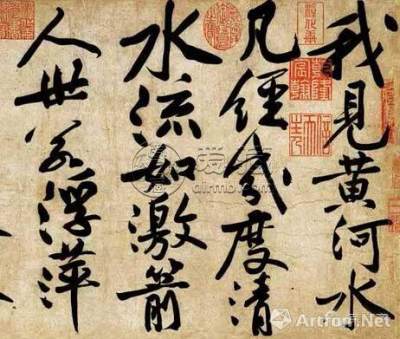 我見黄河水
凡經幾度清
水流如激箭
人世若浮萍
Artron.Net